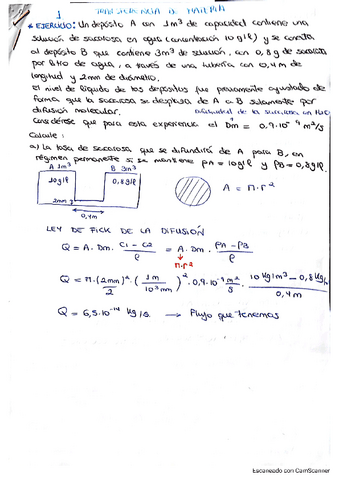 1 TRANSFERENCIA DE MATERIA
* EJERCICIO: Un depósito A con 1m³ de capacidad contiene una
solución de sacarosa en agua (concentración 10g/l) y se conecta
al depósito B que contiene 3m³ de solución, con 0,8g de sacarosa
por litro de agua, a través de una tubería con 0,4m de
longitud y 2mm de diámetro.
El nivel de líquido de los depósitos fue previamente ajustado de
forma que la sacarosa se desplaza de A a B solamente por
difusión molecular.
difusividad de la sacarosa en H2O
Considérese que para esta experiencia el Dm = 0,9·10⁻⁹ m²/s
Calcule:
a) La tasa de sacarosa que se difundirá de A para B, en
régimen permanente si se mantiene ρA = 10g/l y ρB = 0,8g/l.
A 1m³ B 3m³
10g/l 0,8g/l A = π·r²
2mm
0,4m
LEY DE FICK DE LA DIFUSIÓN
Q = A·Dm· C1-C2/ℓ = A·Dm· ρA-ρB/ℓ
π·r²
Q = π·(2mm/2)²·(1m/10³mm)²·0,9·10⁻⁹ m²/s· 10 Kg/m³ - 0,8 Kg/ / 0,4m
Q = 6,5·10⁻¹⁴ Kg/s. → Flujo que tenemos
Escaneado con CamScanner